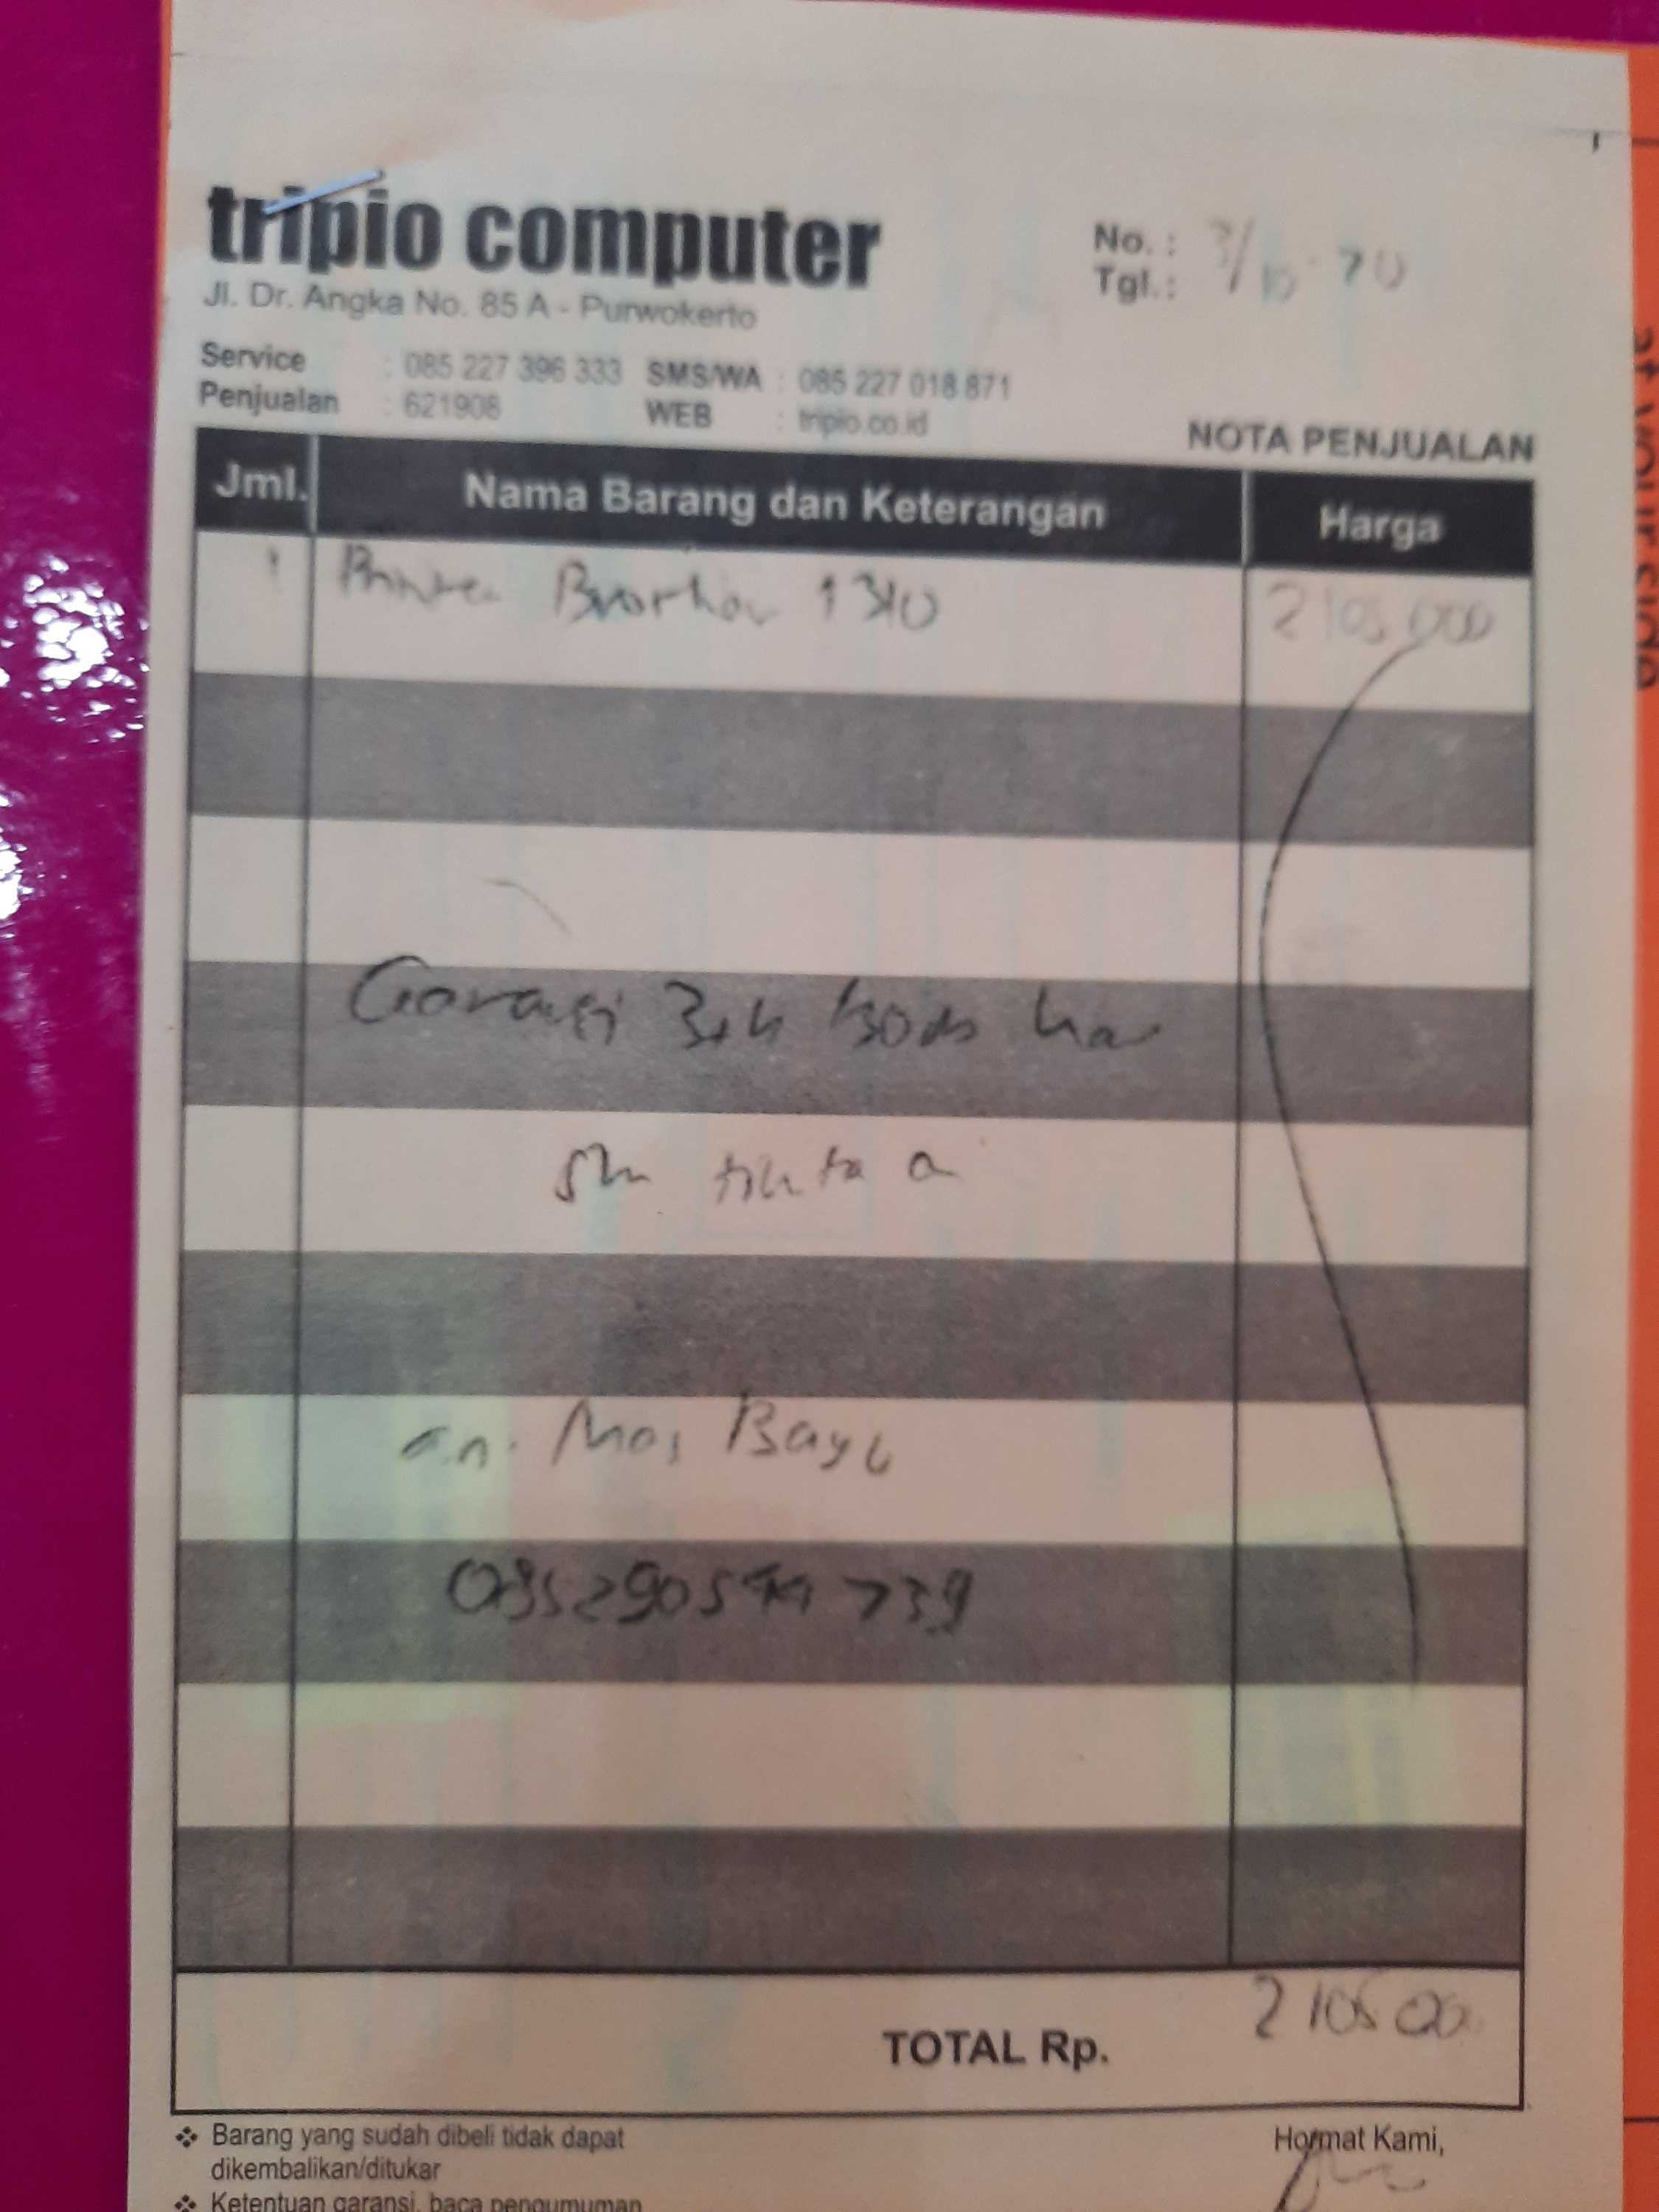 tripio computer
Jl. Dr. Angka No. 85 A - Purwokerto
No. :
Tgl. : 3/10-20
Service : 085 227 396 333 SMS/WA : 085 227 018 871
Penjualan : 621908 WEB : tripio.co.id
NOTA PENJUALAN
Jml. Nama Barang dan Keterangan Harga
1 Printer Brother 1310 2 105 000
Garansi 3th
tinta
a.n. Mas Bayu
739
TOTAL Rp. 2 105 000
❖ Barang yang sudah dibeli tidak dapat
dikembalikan/ditukar
❖ Ketentuan garansi, baca pengumuman
Hormat Kami,